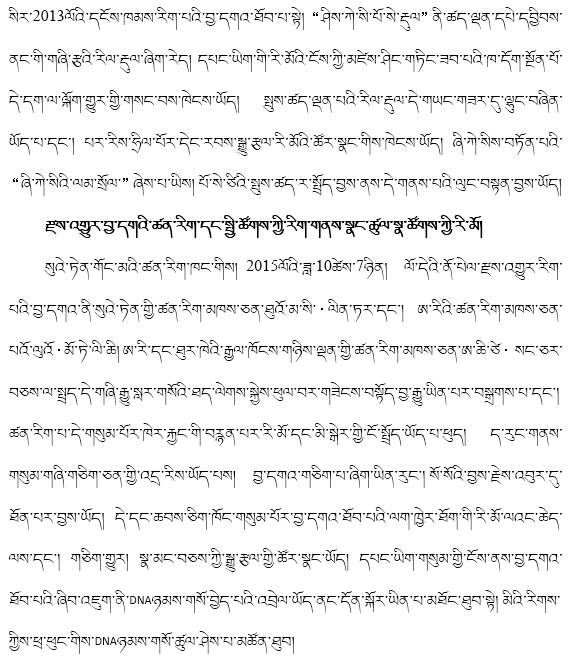 སིར་2013ལོའི་དངོས་ཁམས་རིག་པའི་བྱ་དགའ་ཐོབ་པ་སྟེ། “ཤིས་ཀེ་སི་པོ་སེ་རྡུལ” ནི་ཚད་ལྡན་དཔེ་དབྱིབས་
ནང་གི་གཞི་རྩའི་རིལ་རྡུལ་ཞིག་རེད། དཔང་ཡིག་གི་རི་མོའི་ངོས་ཀྱི་མཛེས་ཤིང་གཏིང་ཟབ་པའི་ཁ་དོག་སྔོན་པོ་
དེ་དག་ལ་ལྐོག་གྱུར་གྱི་གསང་བས་ཁེངས་ཡོད། སྤུས་ཚད་ལྡན་པའི་རིལ་རྡུལ་དེ་གཡང་གཟར་དུ་ལྷུང་བཞིན་
ཡོད་པ་དང་། པར་རིས་ཧྲིལ་པོར་དེང་རབས་སྒྱུ་རྩལ་རི་མོའི་ཚོར་སྣང་གིས་ཁེངས་ཡོད། ཞི་ཀེ་སིས་བཏོན་པའི་
“ཞི་ཀེ་སིའི་ལམ་སྲོལ་” ཞེས་པ་ཡིས། པོ་སེ་ཙིའི་སྤུས་ཚད་ར་སྤྲོད་བྱས་ནས་དེ་གནས་པའི་ལུང་བསྟན་བྱས་ཡོད།
རྫས་འགྱུར་བྱ་དགའི་ཚན་རིག་དང་སྤྱི་ཚོགས་ཀྱི་རིག་གནས་སྣང་ཚུལ་སྣ་ཚོགས་ཀྱི་རི་མོ།
སུའེ་ཏེན་གོང་མའི་ཚན་རིག་ཁང་གིས། 2015ལོའི་ཟླ་10ཚེས་7ཉིན། ལོ་དེའི་ནོ་པེལ་རྫས་འགྱུར་རིག་
པའི་བྱ་དགའ་ནི་སུའེ་ཏེན་གྱི་ཚན་རིག་མཁས་ཅན་ཐུའོ་མ་སི་·ལིན་ཏར་དང་། ཨ་རིའི་ཚན་རིག་མཁས་ཅན་
པའོ་ལུའོ་·མོ་ཏེ་ལི་ཆི། ཨ་རི་དང་ཐུར་ཁེའི་རྒྱལ་ཁོངས་གཉིས་ལྡན་གྱི་ཚན་རིག་མཁས་ཅན་ཨ་ཆི་ཙེ་· སང་ཅར་
བཅས་ལ་སྤྲད་དེ་གཞི་རྒྱུ་སླར་གསོའི་ཐད་ལེགས་སྐྱེས་ཕུལ་བར་གཟེངས་བསྟོད་བྱ་རྒྱུ་ཡིན་པར་བསྒྲགས་པ་དང་།
ཚན་རིག་པ་དེ་གསུམ་པོར་ཁེར་རྐྱང་གི་བརྙན་པར་རི་མོ་དང་མི་སྒེར་གྱི་ངོ་སྤྲོད་ཡོད་པ་ཕུད། ད་རུང་གནས་
གསུམ་གཞི་གཅིག་ཅན་གྱི་འདྲ་རིས་ཡོད་པས། བྱ་དགའ་གཅིག་པ་ཞིག་ཡིན་རུང་། སོ་སོའི་བྱས་རྗེས་འབུར་དུ་
ཐོན་པར་བྱས་ཡོད། དེ་དང་ཆབས་ཅིག་ཁོང་གསུམ་པོར་བྱ་དགའ་ཐོབ་པའི་ལག་ཁྱེར་ཐོག་གི་རི་མོ་ལའང་ཆེད་
ལས་དང་། གཅིག་གྱུར། སྣ་མང་བཅས་ཀྱི་སྒྱུ་རྩལ་གྱི་ཚོར་སྣང་ཡོད། དཔང་ཡིག་གསུམ་གྱི་ངོས་ནས་བྱ་དགའ་
ཐོབ་པའི་ཞིབ་འཇུག་ནི་DNAཉམས་གསོ་བྱེད་པའི་འབྲེལ་ཡོད་ནང་དོན་སྐོར་ཡིན་པ་མཐོང་ཐུབ་སྟེ། མིའི་རིགས་
ཀྱིས་ཕྲ་ཕུང་གིས་DNAཉམས་གསོ་ཚུལ་ཤེས་པ་མཚོན་ཐུབ།